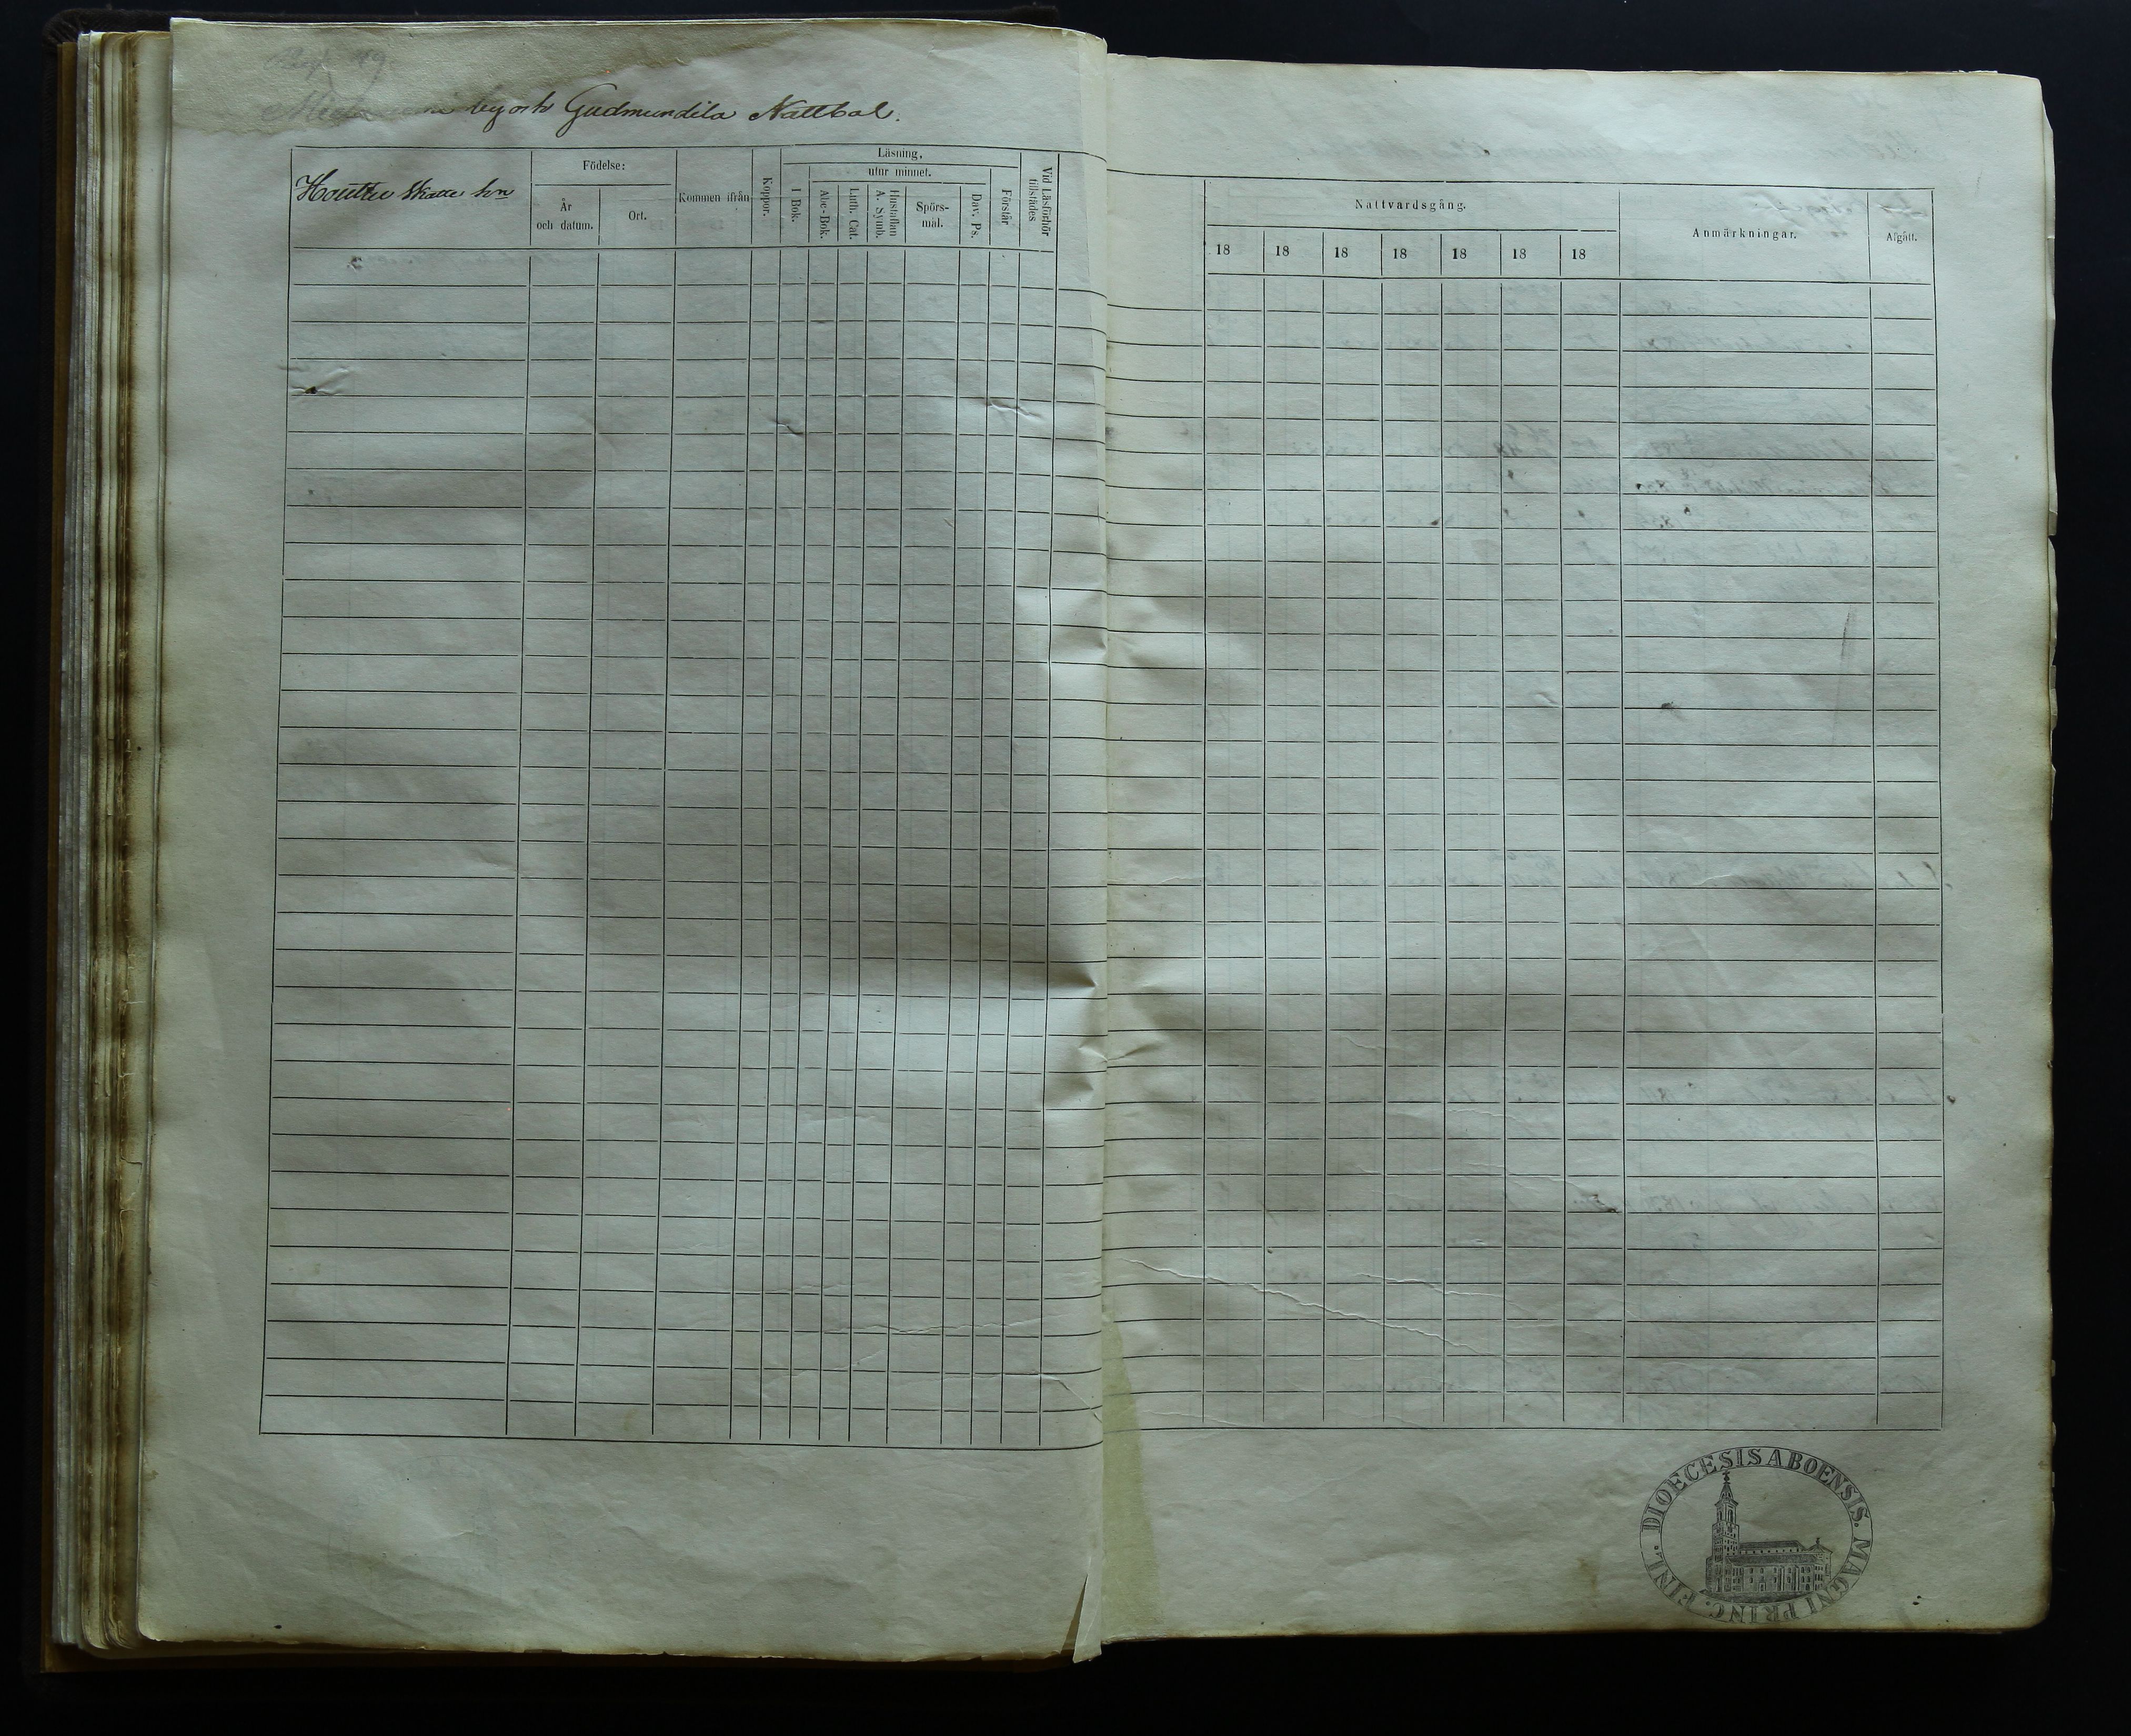 Pag. 49.
by och Gudmundila Nattbol.
Skatte hn
Födelse:
År och datum.
Ort.
Kommen ifrån
Koppor.
Läsning.
I Bok.
utur minnet.
Abc-Bok.
Luth. Cat.
Hustaflan
A. Symb.
Spörs-
mål.
Dav. Ps.
Förstår
Vid Läsförhör
tillstädes
Nattvardsgång.
18 18 18 18 18 18 18
Anmärkningar.
Afgått.
DIOECESIS ABOENSIS. MAGNI PRINC. FINL.